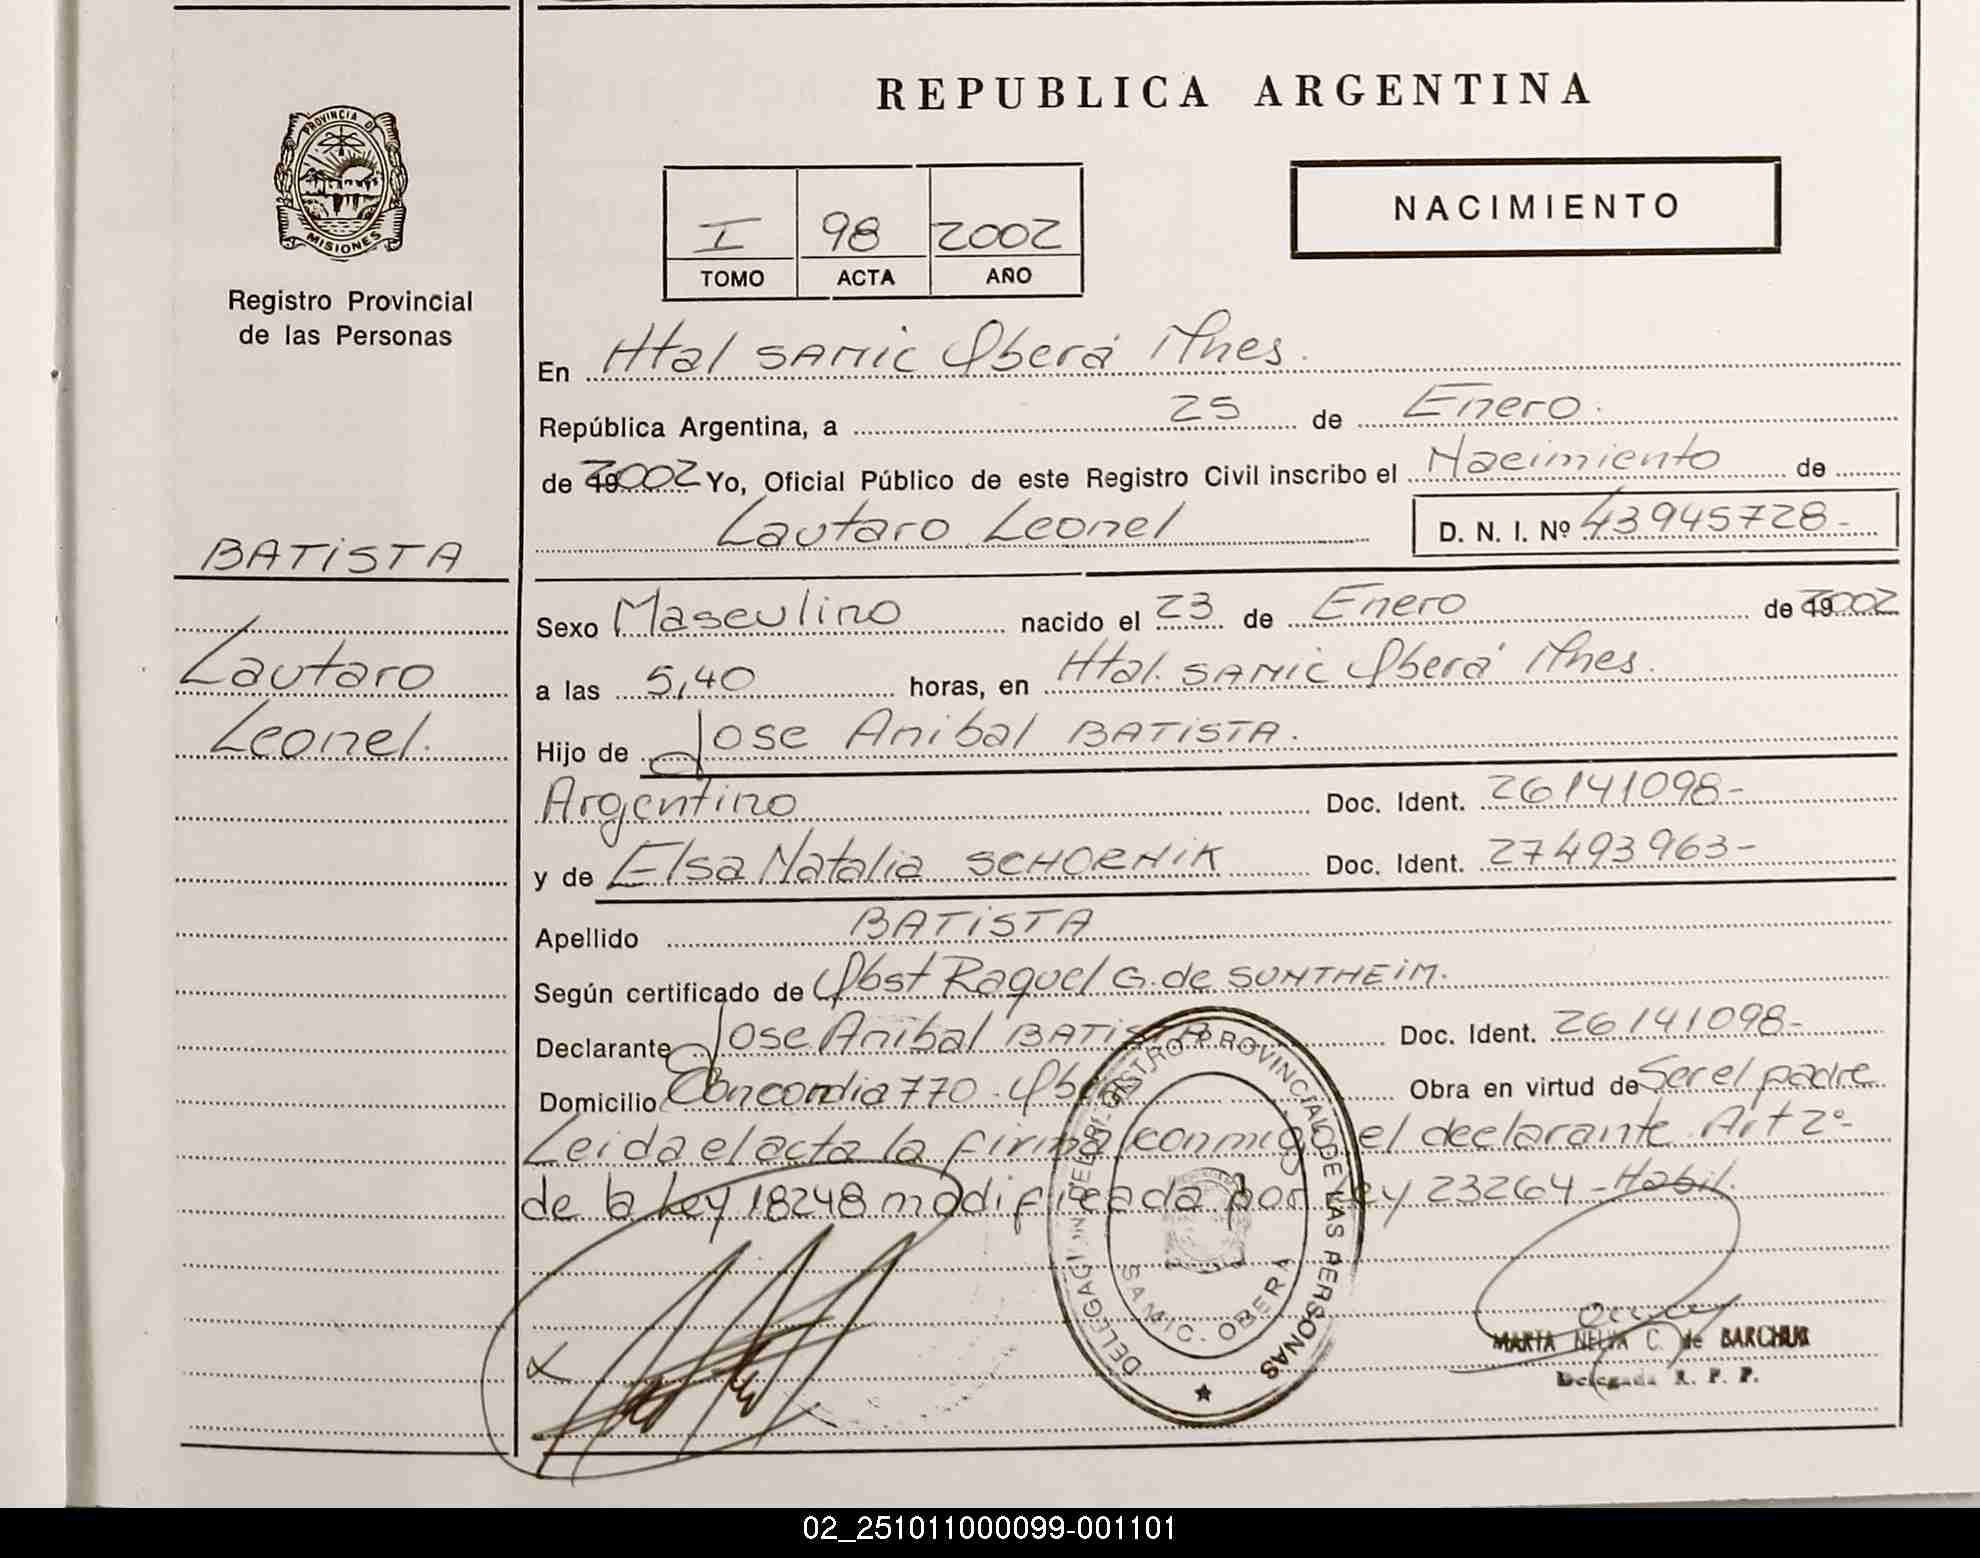 REPUBLICA ARGENTINA
PROVINCIA DE
MISIONES
Registro Provincial
de las Personas
NACIMIENTO
I 98 2002
TOMO ACTA AÑO
En Htal SAMIC Oberá Mnes.
República Argentina, a 25 de Enero.
de 2002 Yo, Oficial Público de este Registro Civil inscribo el Nacimiento de
Lautaro Leonel D. N. I. Nº 43945728-
BATISTA
Lautaro
Leonel.
Sexo Masculino nacido el 23 de Enero de 2002
a las 5,40 horas, en Htal. SAMIC Oberá Mnes.
Hijo de Jose Anibal BATISTA.
Argentino Doc. Ident. 26141098-
y de Elsa Natalia SCHORNIK Doc. Ident. 27493963-
Apellido BATISTA
Según certificado de Obst Raquel G. de SUNTHEIM.
Declarante Jose Anibal BATISTA Doc. Ident. 26141098-
Domicilio Concordia 770 - Oberá Obra en virtud de Ser el padre
Leida el acta la firma conmigo el declarante. Art 2º-
de la Ley 18248 modificada por Ley 23264 - Habil.
DELEGACION DEL REGISTRO PROVINCIAL DE LAS PERSONAS
SAMIC - OBERA
MARTA NELVA C. de BARCHUK
Delegada R. P. P.
02_251011000099-001101